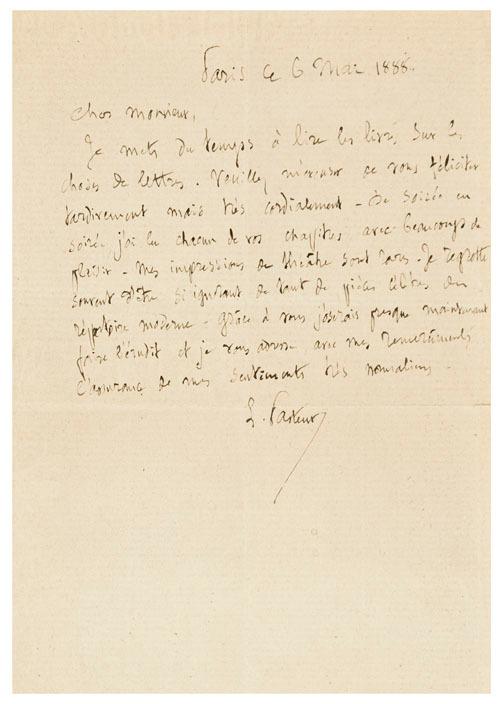 Paris ce 6 Mai 1888.
Cher monsieur,
Je mets du temps à lire les livres sur les
choses de lettres. Veuillez m'excuser de vous féliciter
tardivement mais très cordialement - De soirée en
soirée, j'ai lu chacun de vos chapitres, avec beaucoup de
plaisir - Mes impressions de théâtre sont rares - Je regrette
souvent d'être si ignorant de tant de pièces célèbres du
répertoire moderne - Grâce à vous j'oserais presque maintenant
faire l'érudit et je vous adresse avec mes remerciements
l'assurance de mes sentiments très normaliens -
L. Pasteur